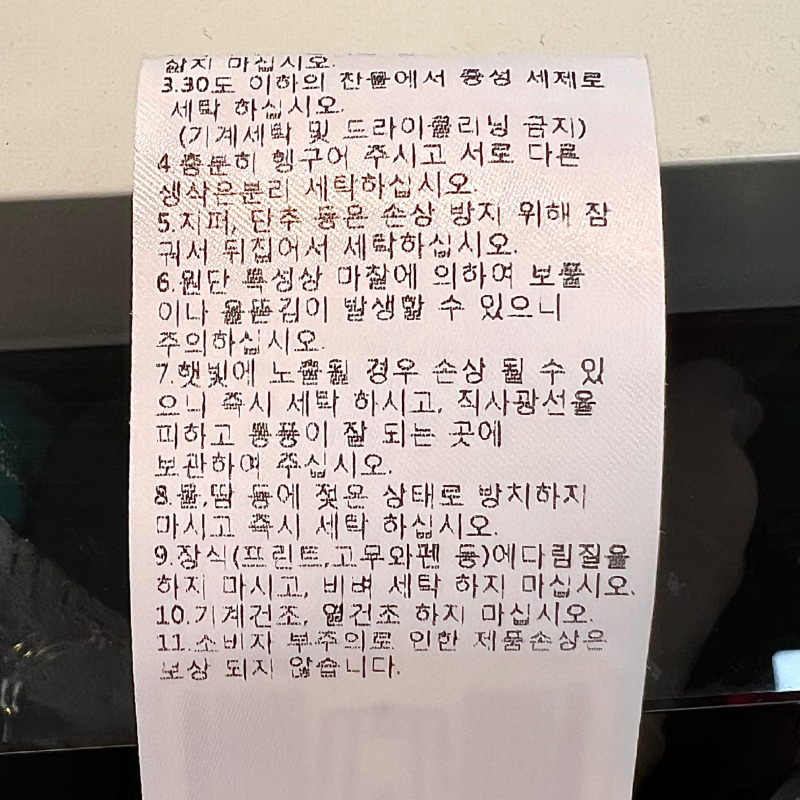 삶지 마십시오.
3.30도 이하의 찬물에서 중성 세제로
세탁 하십시오.
(기계세탁 및 드라이클리닝 금지)
4.충분히 헹구어 주시고 서로 다른
생삭은분리 세탁하십시오.
5.지퍼, 단추 등은 손상 방지 위해 잠
궈서 뒤집어서 세탁하십시오.
6.원단 특성상 마찰에 의하여 보풀
이나 올뜯김이 발생할 수 있으니
주의하십시오.
7.햇빛에 노출될 경우 손상 될 수 있
으니 즉시 세탁 하시고, 직사광선을
피하고 통풍이 잘 되는 곳에
보관하여 주십시오.
8.물,땀 등에 젖은 상태로 방치하지
마시고 즉시 세탁 하십시오.
9.장식(프린트,고무와펜 등)에다림질을
하지 마시고, 비벼 세탁 하지 마십시오.
10.기계건조, 열건조 하지 마십시오.
11.소비자 부주의로 인한 제품손상은
보상 되지 않습니다.